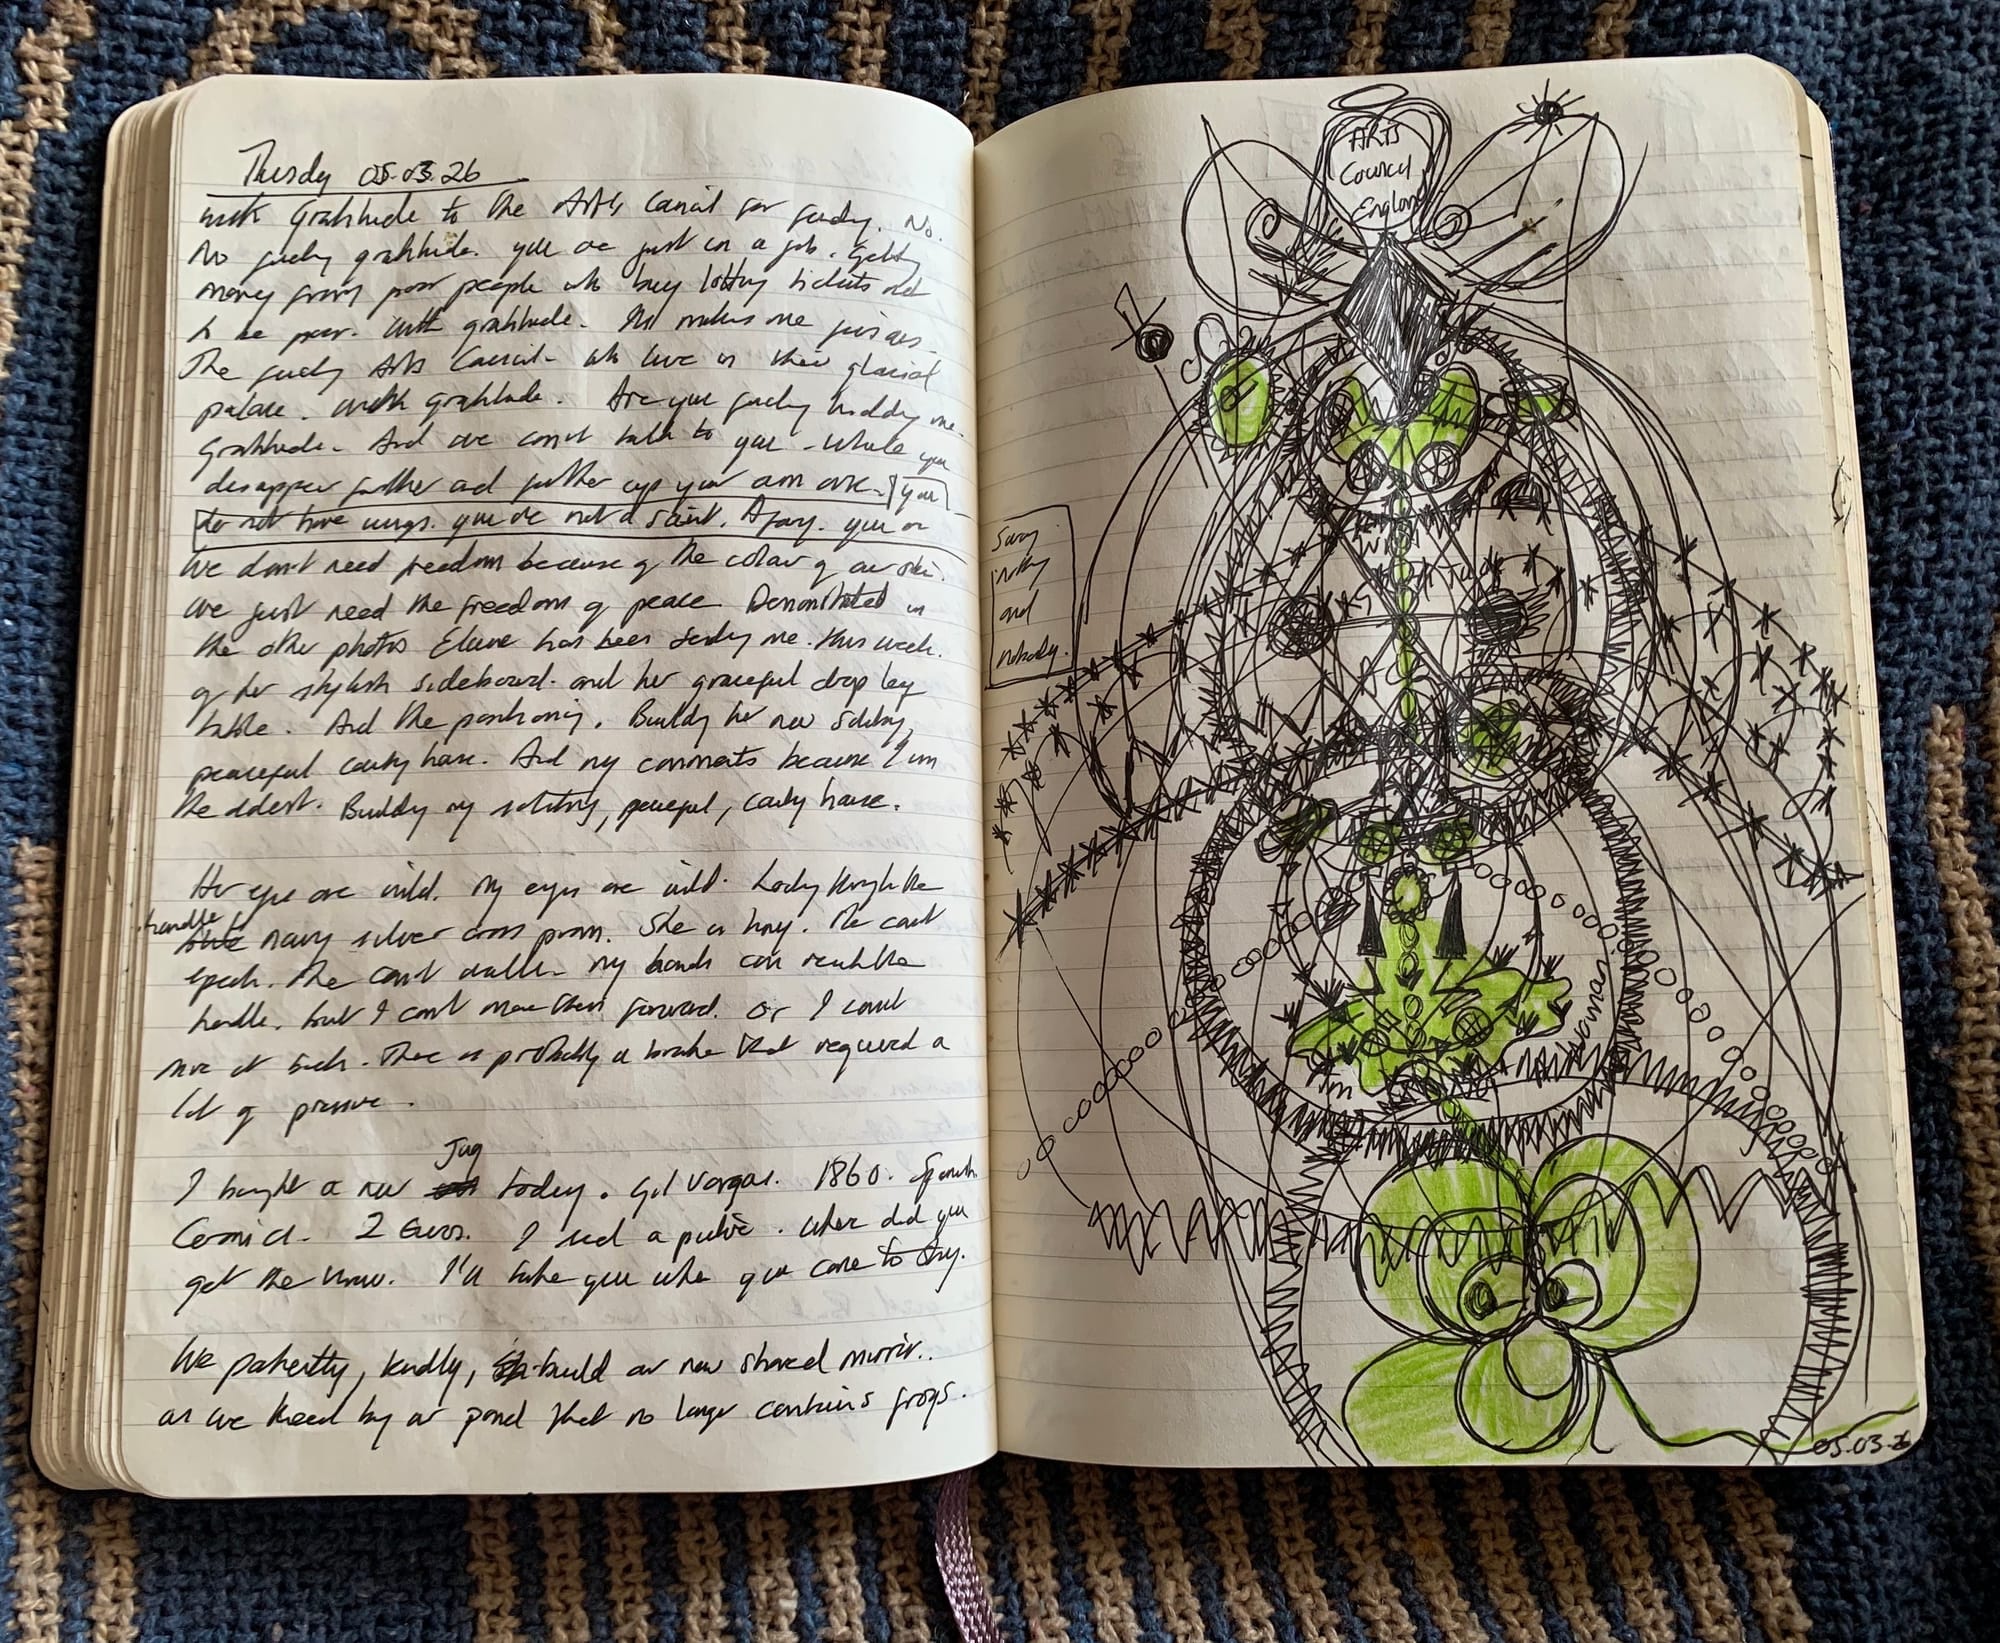 Thursday 05.03.26
with Gratitude to the Arts Council for funding. No.
No fucking gratitude. you are just in a job. Getting
money from poor people who buy lottery tickets not
to be poor. With gratitude. It makes me furious.
The fucking Arts Council - who live in their glacial
palace. With gratitude. Are you fucking kidding me.
Gratitude. And we can't talk to you - while you
disappear further and further up your own arse. you
do not have wings. you're not a Saint.
We don't need freedom because of the colour of our skin.
We just need the freedom of peace. Demonstrated in
the other photos Elaine has been sending me. this week.
of her stylish sideboard. and her graceful drop leg
table. And the positioning. Building her new solitary,
peaceful country house. And my comments because I am
the oldest. Building my solitary, peaceful, country house.
Her eyes are wild. My eyes are wild. Looking through the
handle
navy silver cross pram. She is tiny. She can't
speak. She can't walk. My hands can reach the
handle. but I can't move them forward. Or I can't
move it back. There is probably a brake that required a
lot of pressure.
Jug
I bought a new today. Gil Vargas. 1860. Spanish
Ceramic. 2 Euros. I sent a picture. Where did you
get the. I'll take you when you come to stay.
We patiently, kindly, build our new shared mirror..
as we kneel by our pond that no longer contains frogs.
ARTS
Council
England
Sorry
nothing
and
nobody.
I'm
A
woman
05.03.26